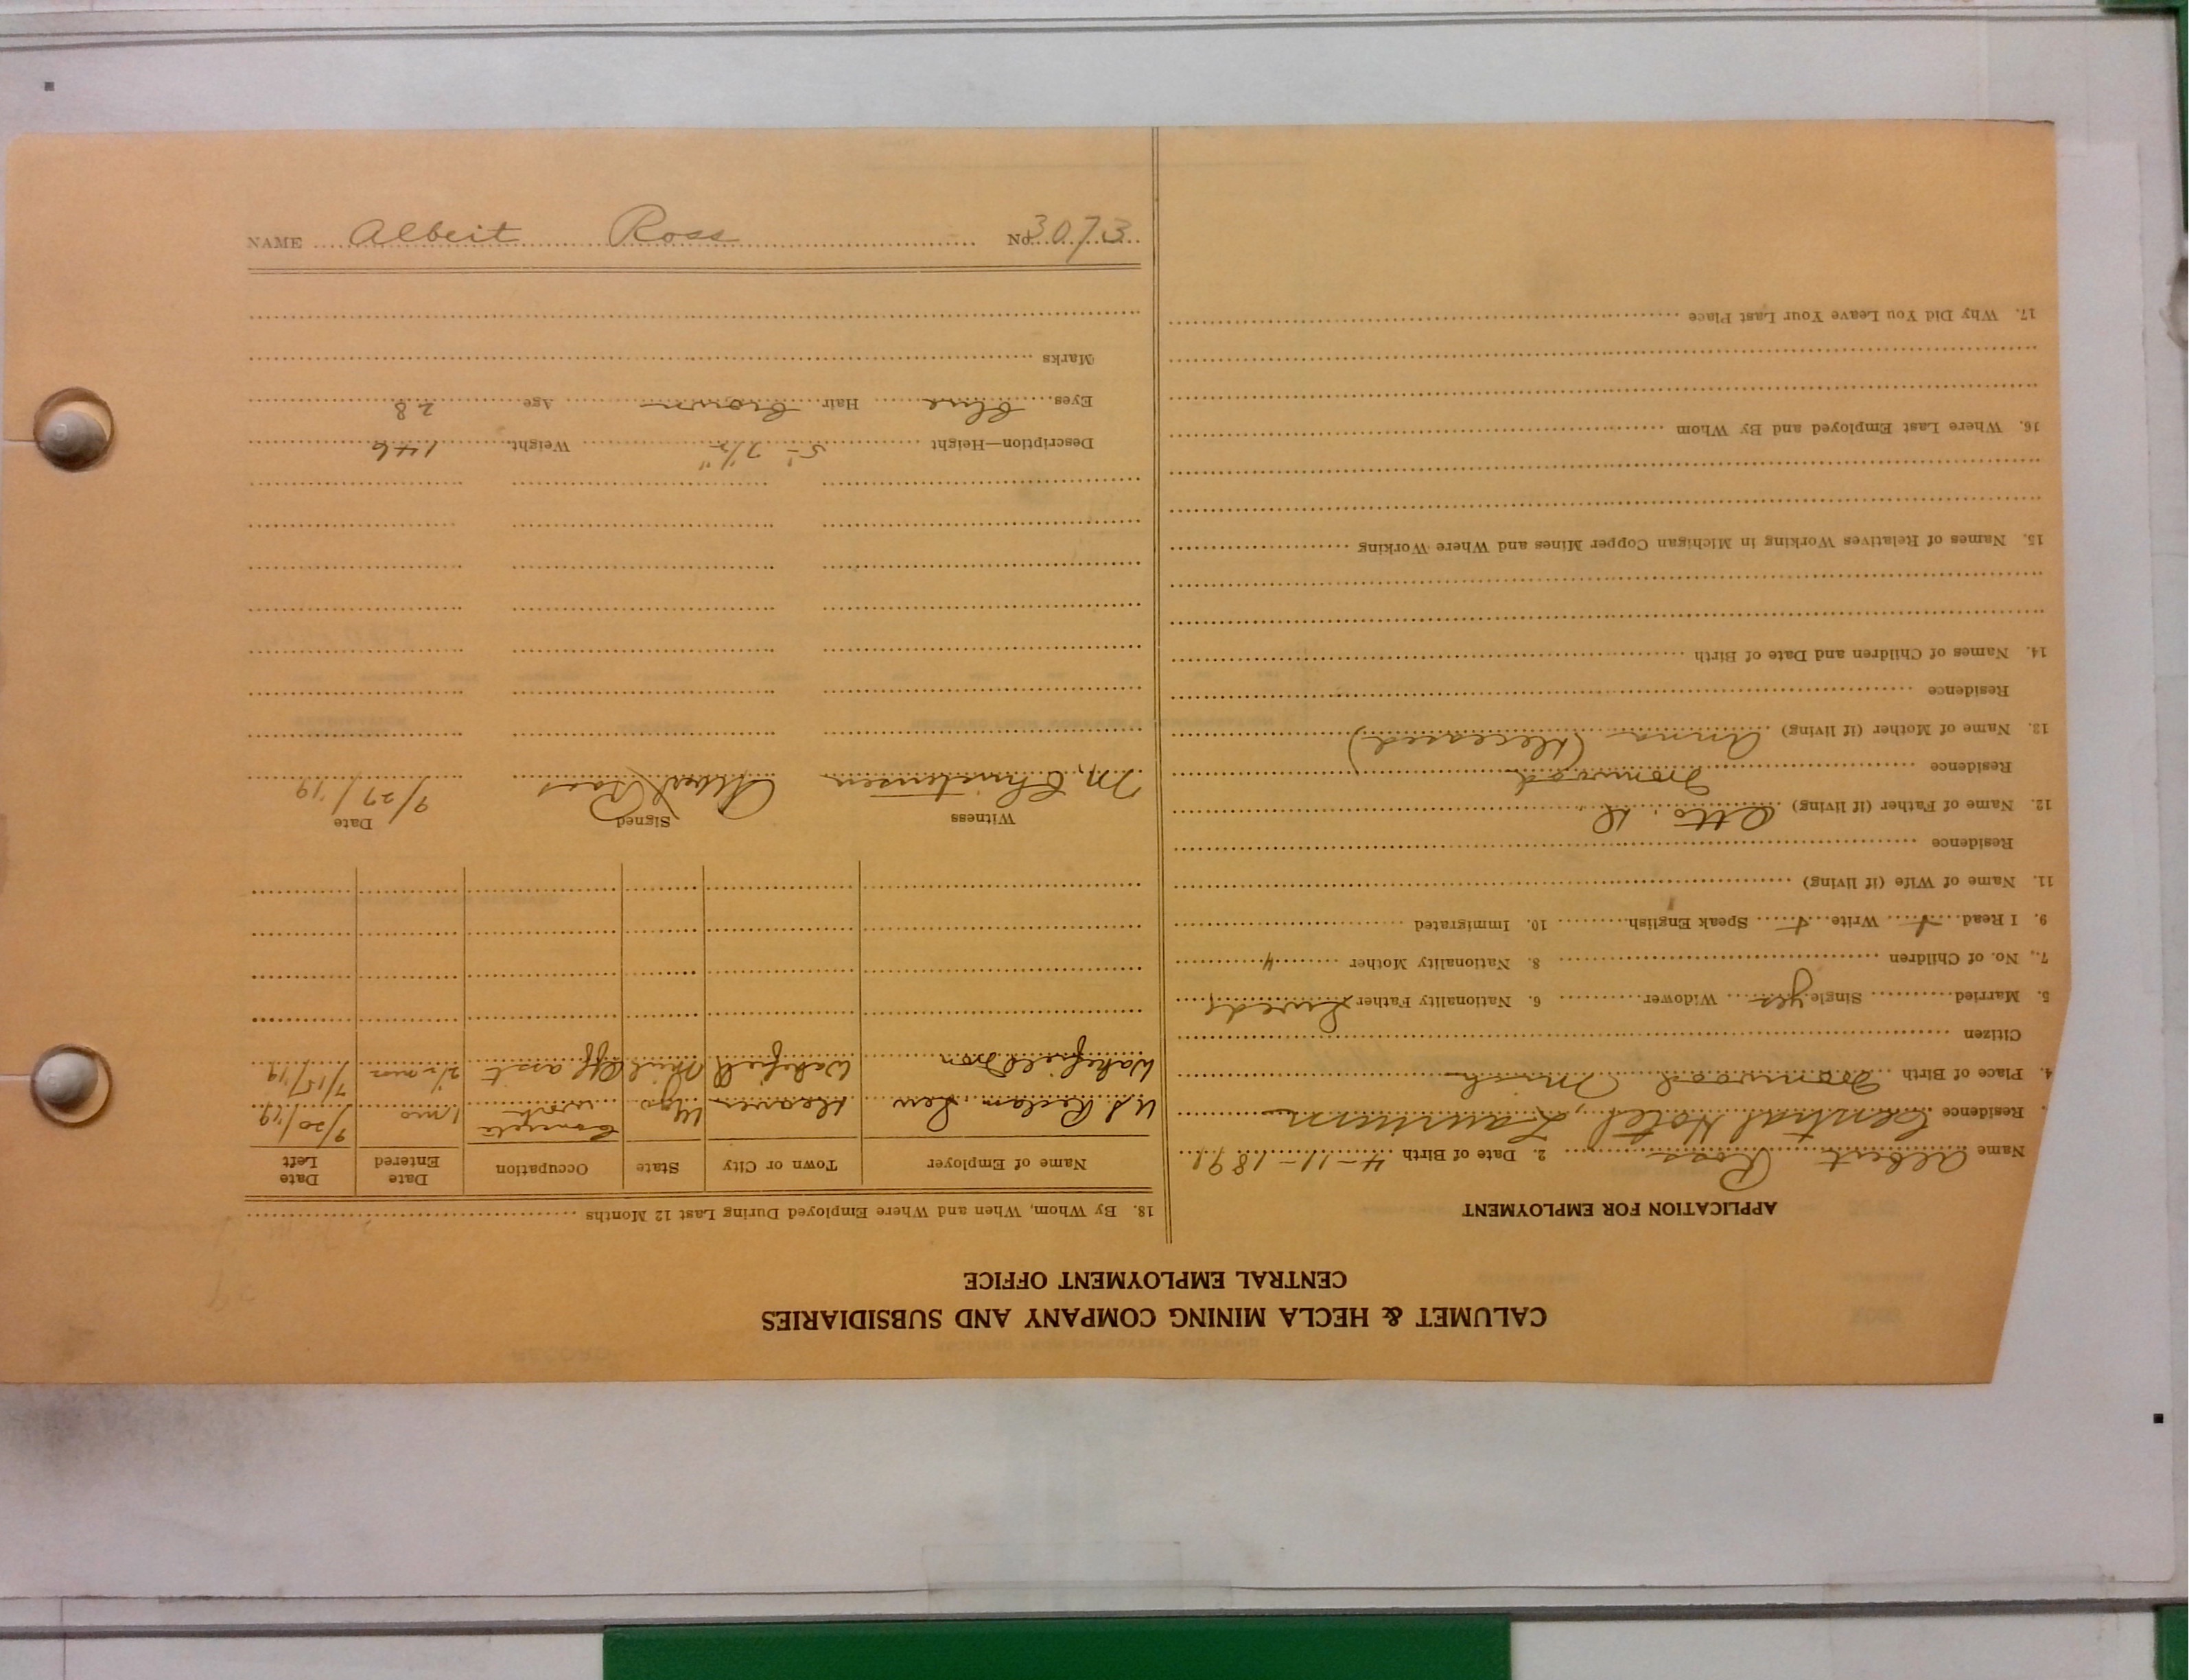 CALUMET & HECLA MINING COMPANY AND SUBSIDIARIES
CENTRAL EMPLOYMENT OFFICE
APPLICATION FOR EMPLOYMENT
Name Albert Ross 2. Date of Birth 4-11-1891
Residence Central Hotel, Laurium
4. Place of Birth Ironwood Mich
Citizen
5. Married Single yes Widower 6. Nationality Father Swede
7. No. of Children 8. Nationality Mother "
9. I Read + Write + Speak English 10. Immigrated
11. Name of Wife (if living)
Residence
12. Name of Father (if living) Otto. D
Residence Ironwood
13. Name of Mother (if living) Anna (Deceased)
Residence
14. Names of Children and Date of Birth
15. Names of Relatives Working in Michigan Copper Mines and Where Working
16. Where Last Employed and By Whom
17. Why Did You Leave Your Last Place
18. By Whom, When and Where Employed During Last 12 Months
Name of Employer Town or City State Occupation Date Entered Date Left
U.S. Reclam Serv Deaver Wyo. Concrete work 1 mo 9/20/19
Wakefield Iron Wakefield Mich Eff asst 2½ mos 7/15/19
Witness Signed Date
M. Christensen Albert Ross 9/27/19
Description—Height 5'- 7½" Weight 146
Eyes blue Hair brown Age 28
Marks
NAME Albert Ross No. 3073